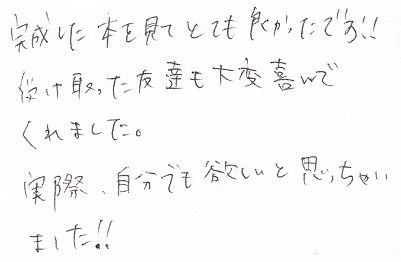 完成した本を見てとても良かったです!!
受け取った友達も大変喜んで
くれました。
実際、自分でも欲しいと思っちゃい
ました!!